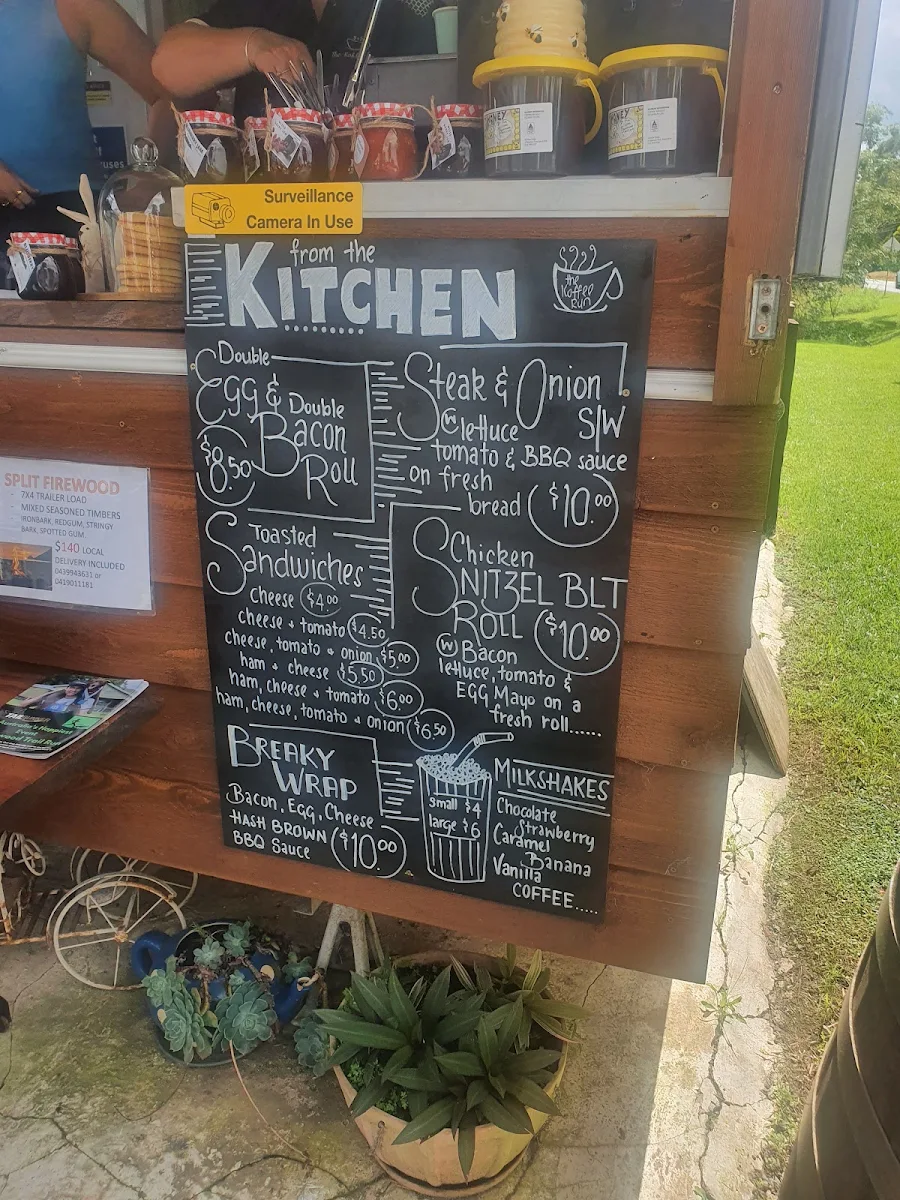 HONEY
HONEY
Surveillance
Camera In Use
from the
KITCHEN
the
Koffee
Run
Double
Egg & Double
Bacon
Roll
$8.50
Steak & Onion
S/W
W lettuce
tomato & BBQ sauce
on fresh
bread $10.00
Toasted
Sandwiches
Cheese $4.00
cheese + tomato $4.50
cheese, tomato + onion $5.00
ham + cheese $5.50
ham, cheese + tomato $6.00
ham, cheese, tomato + onion $6.50
Chicken
SNITZEL BLT
ROLL $10.00
W Bacon
lettuce, tomato &
EGG Mayo on a
fresh roll......
BREAKY
WRAP
Bacon, Egg, Cheese
HASH BROWN
BBQ Sauce
$10.00
small $4
large $6
MILKSHAKES
Chocolate
Strawberry
Caramel
Banana
Vanilla
COFFEE.....
SPLIT FIREWOOD
- 7X4 TRAILER LOAD
- MIXED SEASONED TIMBERS
IRONBARK, REDGUM, STRINGY
BARK, SPOTTED GUM
$140 LOCAL
DELIVERY INCLUDED
0439943631 or
0419011181